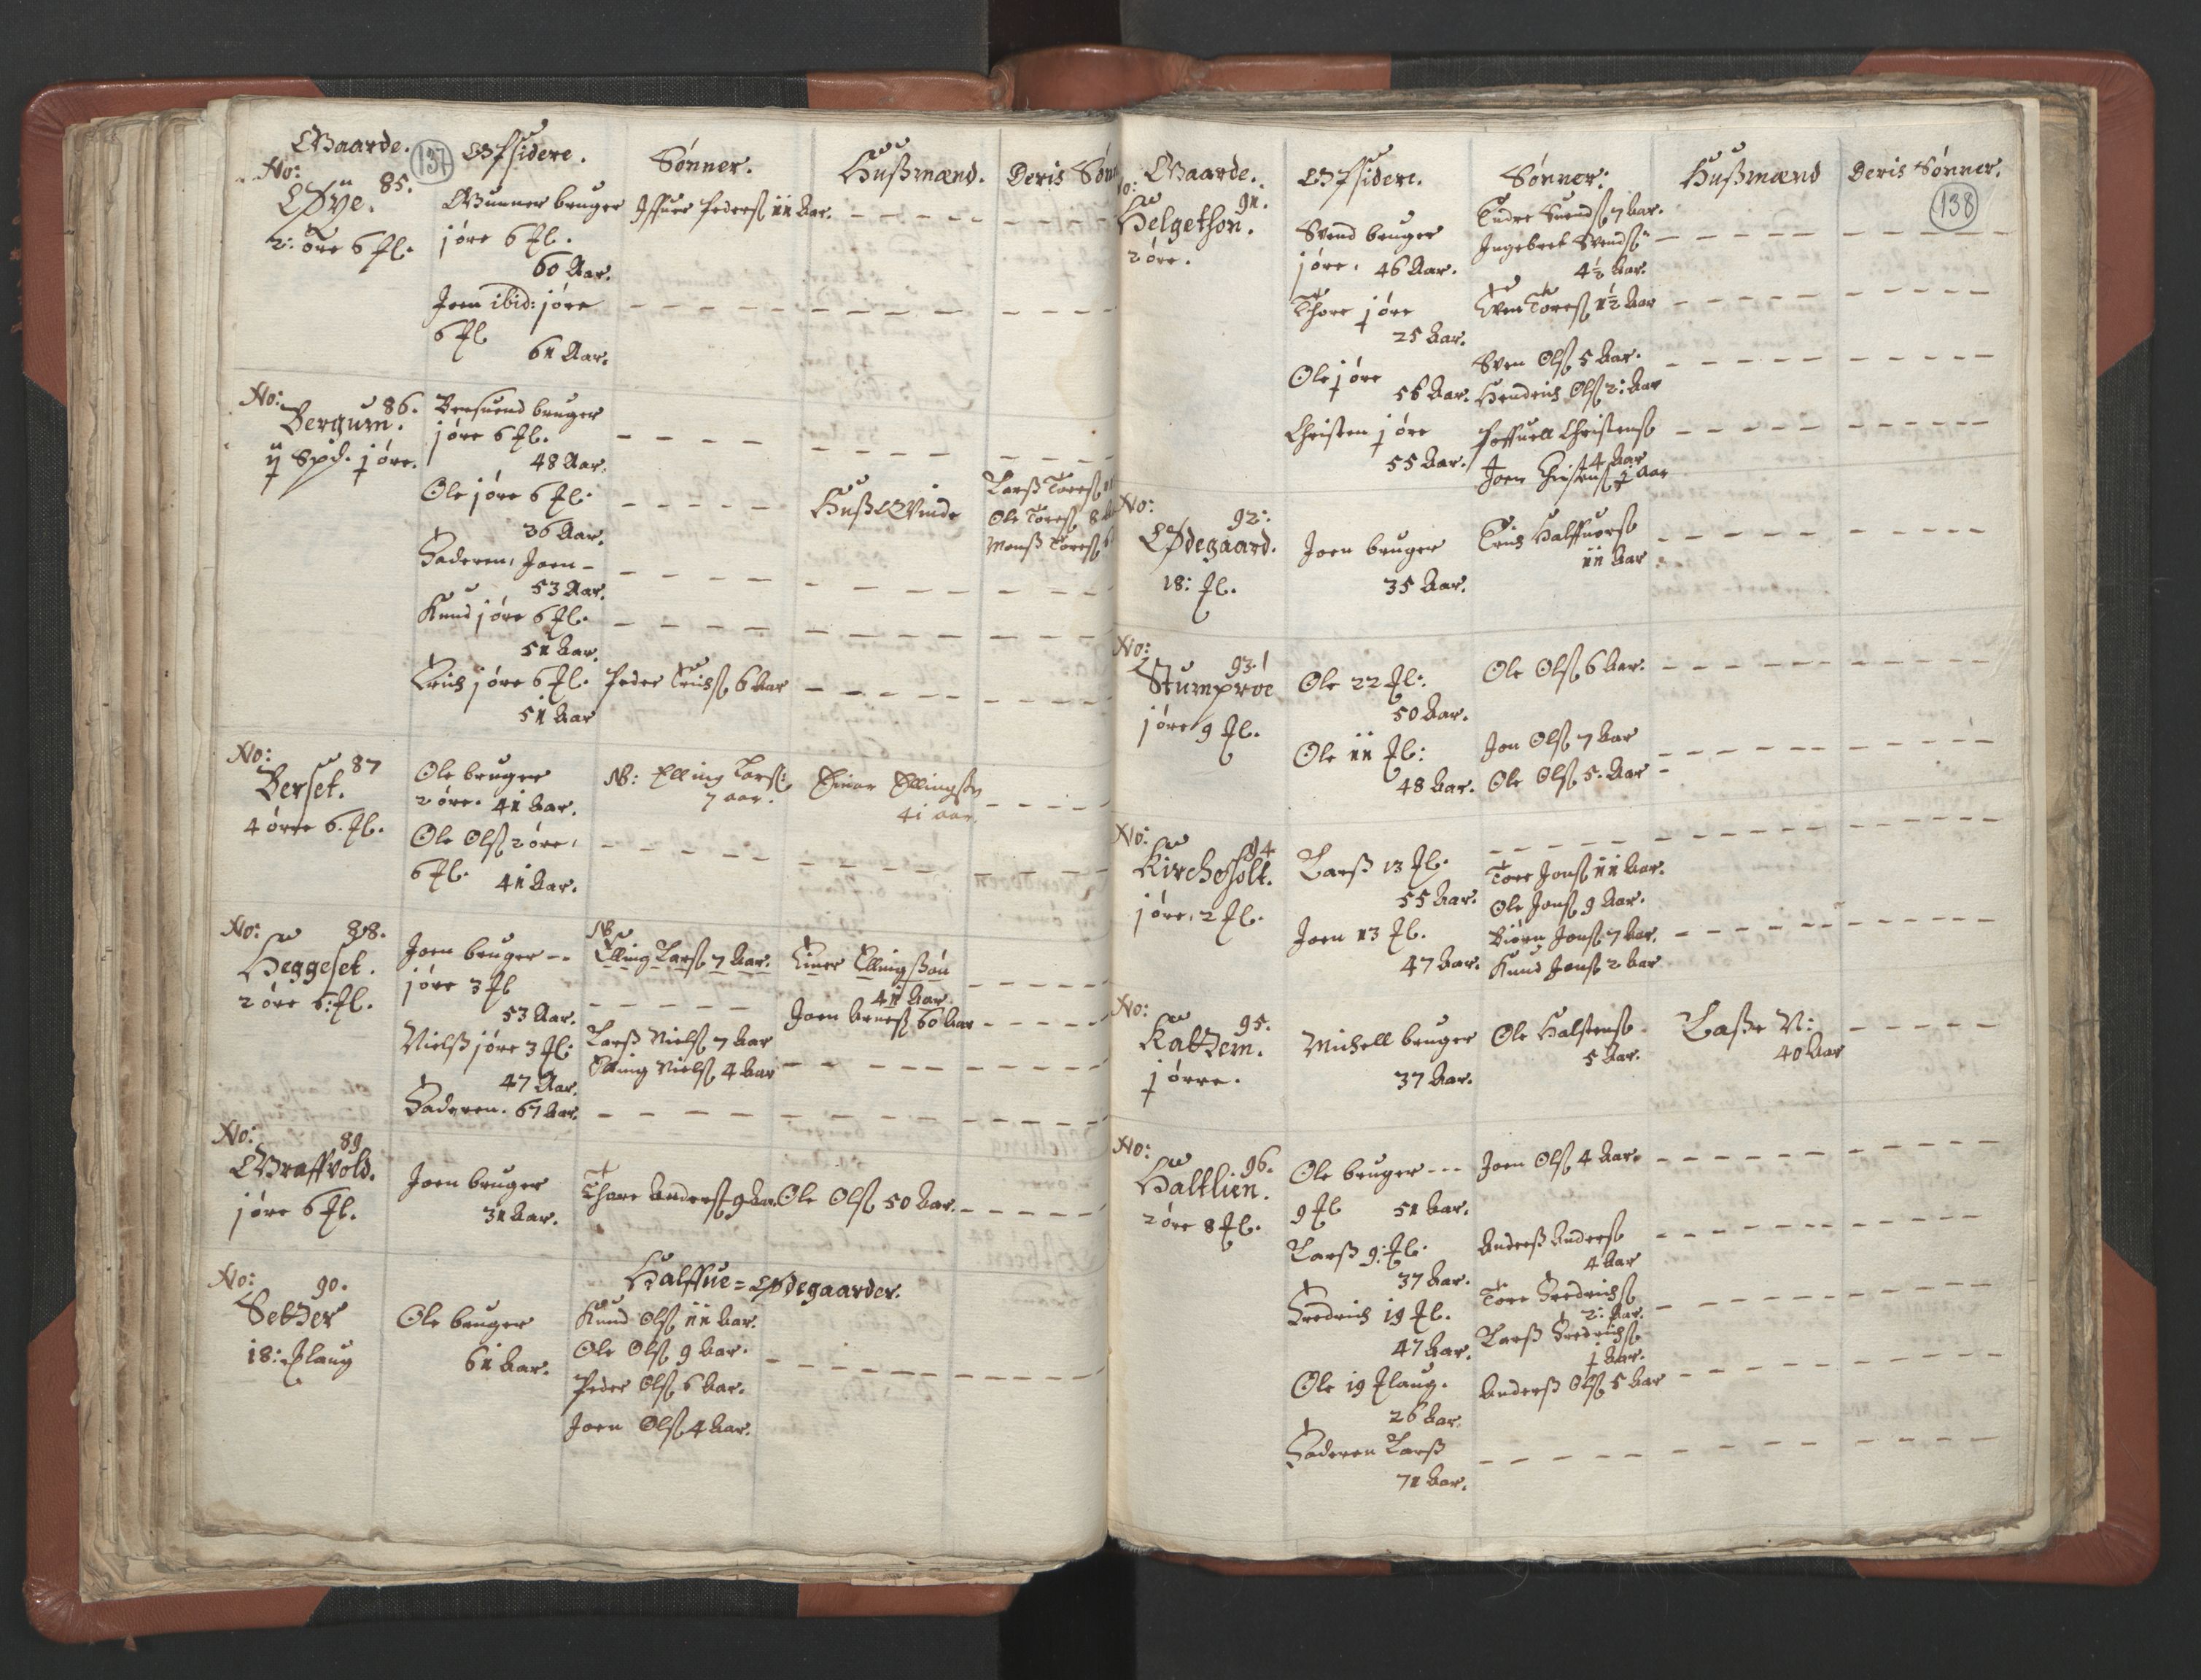 Gaarde. 137 Opsidere. Sønner. Hußmænd. Deris Sønn
No: 85.
Øye.
2: øre 6 Fl.
Gunner bruger
j øre 6 Fl.
60 Aar.
Iffuer Peders. 11 Aar.
Joen ibid: j øre
6 Fl
61 Aar.
No: 86.
Bergum.
ij Spd. j øre.
j øre 6 Fl.
48 Aar.
Ole j øre 6 Fl.
36 Aar.
Hußqvinde
Larß Tores.
Ole Tores. 8
Monß Tores. 6
Faderen, Joen
53 Aar.
Knud j øre 6 Fl.
51 Aar.
Erich j øre 6 Fl.
51 Aar
Peder Erichs. 6 Aar
No: 87
Berset.
4 øre 6. Fl.
Ole bruger
2 øre. 41 Aar.
NB: Elling Larss:
7 aar.
Einar Ellingss.
41 aar.
Ole Ols. 2 øre,
6 Fl. 41 Aar.
No: 88.
Heggeset.
2 øre 6: Fl.
Joen bruger --
j øre 3 Fl
53 Aar.
NB
Elling Lars. 7 Aar.
Einer Ellingßøn
41 Aar
Joen Arnes. 60 Aar
Nielß j øre 3 Fl:
47 Aar.
Larß Niels. 7 Aar
Elling Niels. 4 Aar
Faderen. 67 Aar.
No: 89.
Graffvold.
j øre 6 Fl.
Joen bruger
31 Aar.
Thore Anders. 9 Aar.
Ole Ols. 50 Aar.
Halffue = Ødegaarder.
No: 90.
Setzer
18: Flaug
Ole bruger
61 Aar.
Knud Ols. 11 Aar.
Ole Ols. 9 Aar.
Peder Ols. 6 Aar.
Joen Ols. 4 Aar.
Gaarde. Opsidere. Sønner: Hußmænd Deris Sønner.
138
No: 91.
Helgethon.
2 øre.
Svend bruger
j øre, 46 Aar.
Endre Suends. 7 Aar.
Ingebret Svends.
4½ Aar.
Thore j øre
25 Aar.
Even Tores. 1½ Aar
Ole j øre
56 Aar.
Sven Ols. 5 Aar.
Hendrich Ols. 2: Aar
Christen j øre
55 Aar.
Poffuell Christens.
4 Aar
Joen Christens. j Aar
No: 92:
Ødegaard.
18: Fl.
Joen bruger
35 Aar.
Erich Halffuors.
11 Aar
No: 93.
Stumproe
j øre 9 Fl.
Ole 22 Fl:
50 Aar.
Ole Ols. 6 Aar.
Ole 11 Fl:
48 Aar.
Jon Ols. 7 Aar
Ole Ols. 5. Aar
No: 94
Kircheholt.
j øre, 2 Fl.
Larß 13 Fl.
55 Aar.
Joen 13 Fl.
47 Aar.
Tore Jons. 11 Aar.
Ole Jons. 9 Aar.
Biørn Jons. 7 Aar.
Knud Jons. 2 Aar
No: 95.
Katzem.
j ørre.
Michell bruger
37 Aar.
Ole Halstens.
5 Aar.
Laße N:
40 Aar
No: 96.
Haltlien.
2 øre 8 Fl.
Ole bruger ---
9 Fl 51 Aar.
Joen Ols. 4 Aar.
Larß 9: Fl.
37 Aar.
Anderß Anders.
4 Aar
Fredrich 19 Fl.
47 Aar.
Tore Fredrichs.
2: Aar.
Larß Fredrichs.
j Aar.
Ole 19 Flaug.
26 Aar.
Anderß Ols. 5 Aar
Faderen Larß
71 Aar.